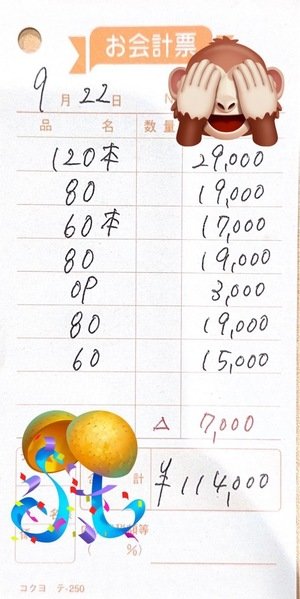 お会計票
9月22日 N
品名 数量
120本 29,000
80 19,000
60本 17,000
80 19,000
OP 3,000
80 19,000
60 15,000
△ 7,000
計 ¥114,000
等
( %)
コクヨ テ-250